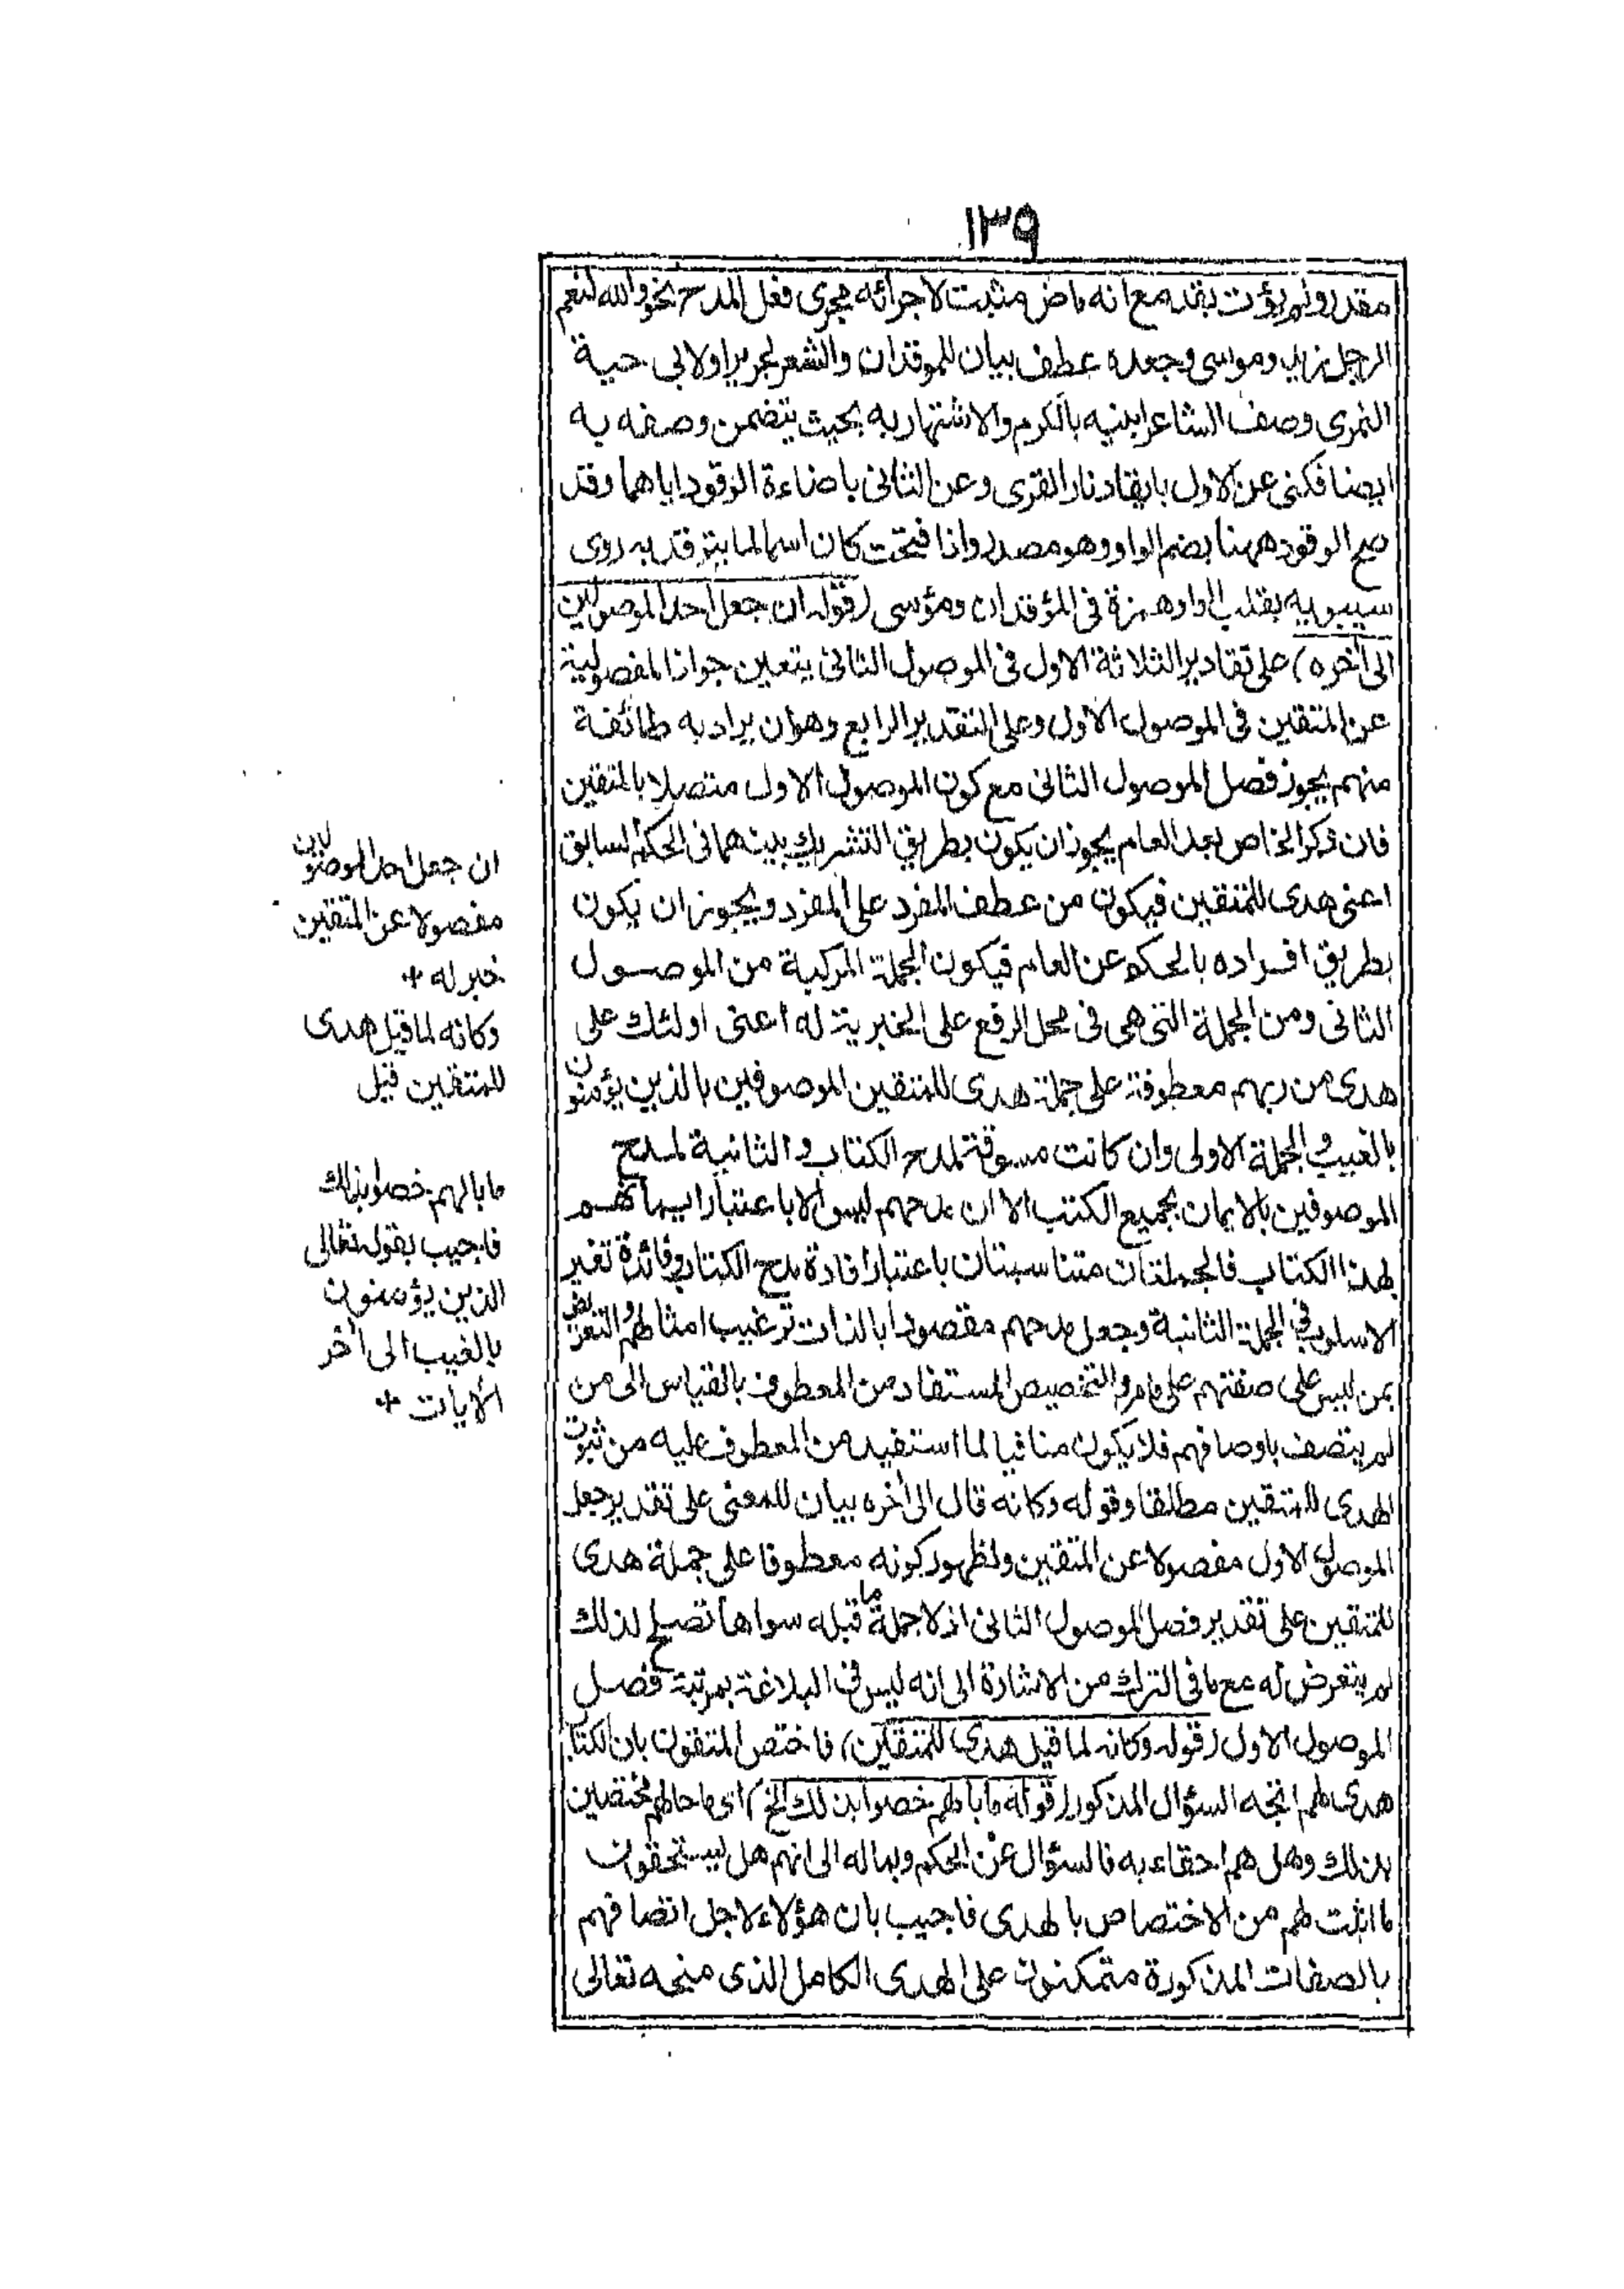 ١٣٩
مقدر ولم يؤت بقد مع انه ماض مثبت لاجرائه مجرى فعل المدح نحو والله لنعم
الرجل زيد وموسى وجعده عطف بيان للموقدان والشعر لجرير اولابي حية
النمرى وصف الشاعر ابنيه بالكرم والاشتهار به بحيث يتضمن وصفه به
ايضا فكنى عن الاول بايقاد نار القرى وعن الثانى باضاءة الوقود اياهما وقد
صح الوقود ههنا بضم الواو وهو مصدر واذا فتحت كان اسما لما يتوقد به روى
سيبويه بقلب الواو همزة فى المؤقدان ومؤسى (قوله ان جعل احد الموصولين
الى آخره) على تقادير الثلاثة الاول فى الموصول الثانى يتعين جواز المفصولية
عن المتقين فى الموصول الاول وعلى التقدير الرابع وهو ان يراد به طائفة
منهم يجوز فصل الموصول الثانى مع كون الموصول الاول متصلا بالمتقين
فان ذكر الخاص بعد العام يجوز ان يكون بطريق التشريك بينهما فى الحكم السابق
اعنى هدى للمتقين فيكون من عطف المفرد على المفرد ويجوز ان يكون
بطريق افراده بالحكم عن العام فيكون الجملة المركبة من الموصول
الثانى ومن الجملة التى هى فى محل الرفع على الخبرية له اعنى اولئك على
هدى من ربهم معطوفة على جملة هدى للمتقين الموصوفين بالذين يؤمنون
بالغيب والجملة الاولى وان كانت مسوقة لمدح الكتاب والثانية لمدح
الموصوفين بالايمان بجميع الكتب الا ان مدحهم ليس الا باعتبار ايمانهم
لهذا الكتاب فالجملتان متناسبتان باعتبار افادة مدح الكتاب وفائدة تغير
الاسلوب فى الجملة الثانية وجعل مدحهم مقصودا بالذات ترغيب امثالهم والتعريض
بمن ليس على صفتهم على مامر والتخصيص المستفاد من المعطوف بالقياس الى من
لم يتصف باوصافهم فلا يكون منافيا لما استفيد من المعطوف عليه من ثبوت
الهدى للمتقين مطلقا وقوله وكانه قال الى آخره بيان للمعنى على تقدير جعل
الموصول الاول مفصولا عن المتقين ولظهور كونه معطوفا على جملة هدى
للمتقين على تقدير فصل الموصول الثانى اذ لا جملة ما قبله سواها تصلح لذلك
لم يتعرض له مع ما فى الترك من الاشارة الى انه ليس فى البلاغة بمرتبة فصل
الموصول الاول (قوله وكانه لما قيل هدى للمتقين) فاختص المتقون بان الكتاب
هدى لهم اتجه السؤال المذكور (قوله ما بالهم خصوا بذلك الخ) اى ما حالهم مختصين
بذلك وهل هم احقاء به فالسؤال عن الحكم وبماله الى انهم هل يستحقون
ما اثبت لهم من الاختصاص بالهدى فاجيب بان هؤلاء لاجل اتصافهم
بالصفات المذكورة متمكنون على الهدى الكامل الذى منحه تعالى
ان جعل احد الموصولين
مفصولا عن المتقين
خبر له +
وكانه لما قيل هدى
للمتقين قيل
ما بالهم خصوا بذلك
فاجيب بقوله تعالى
الذين يؤمنون
بالغيب الى آخر
الآيات +